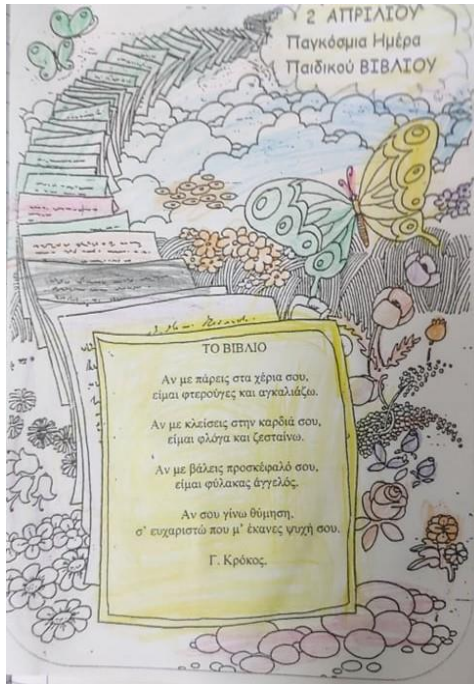 2 ΑΠΡΙΛΙΟΥ
Παγκόσμια Ημέρα
Παιδικού ΒΙΒΛΙΟΥ
ΤΟ ΒΙΒΛΙΟ
Αν με πάρεις στα χέρια σου,
είμαι φτερούγες και αγκαλιάζω.
Αν με κλείσεις στην καρδιά σου,
είμαι φλόγα και ζεσταίνω.
Αν με βάλεις προσκέφαλό σου,
είμαι φύλακας άγγελός.
Αν σου γίνω θύμηση,
σ' ευχαριστώ που μ' έκανες ψυχή σου.
Γ. Κρόκος.